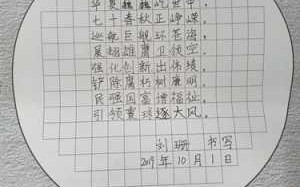 华夏巍巍屹世中，
七十春秋正峥嵘。
巡航巨舰环苍海，
展翅雄鹰卫领空。
强化创新出佳绩，
铲除腐朽树廉明。
民强国富增福祉，
引领寰球逐大风。
刘珊 书写
2019年10月1日